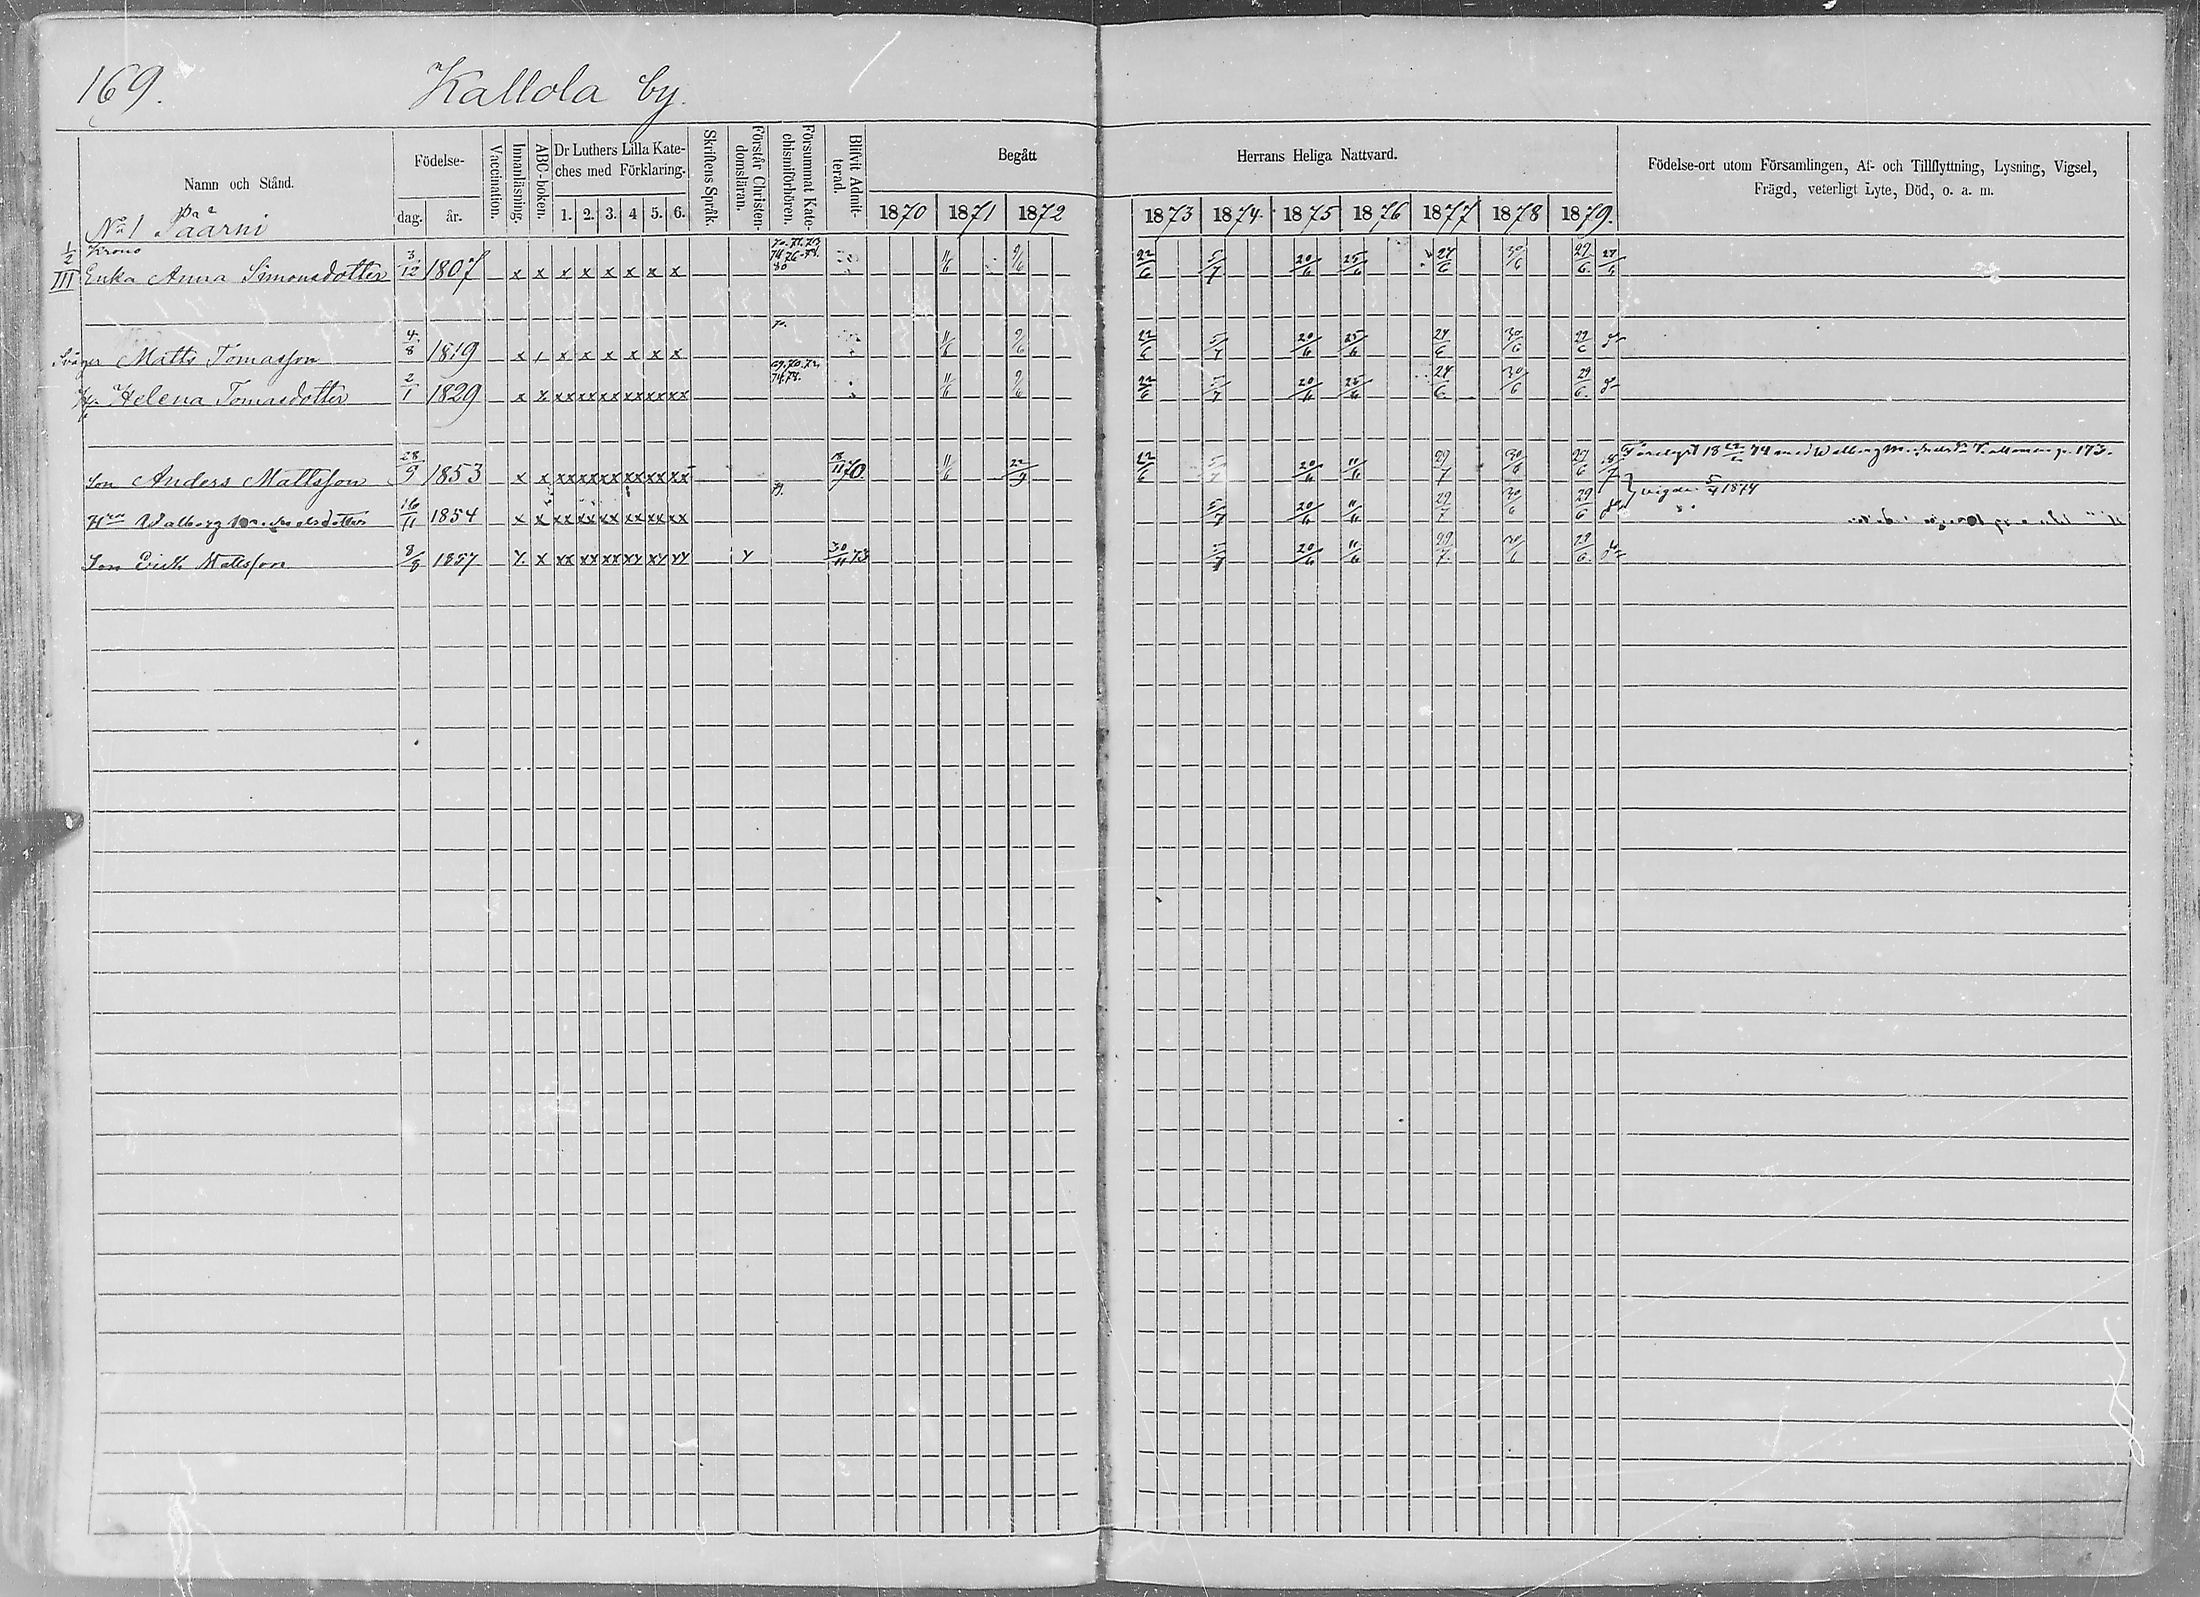 169. Kallola by.
Namn och Stånd.
Födelse-
dag. år.
Vaccination.
Innanläsning.
ABC-boken.
Dr Luthers Lilla Kate-
ches med Förklaring.
1. 2. 3. 4 5. 6.
Skriftens Språk.
Förstår Christen-
domsläran.
Försummat Kate-
chismiförhören.
Blifvit Admit-
terad.
Begått Herrans Heliga Nattvard.
1870 1871 1872 1873 1874 1875 1876 1877 1878 1879.
Födelse-ort utom Församlingen, Af- och Tillflyttning, Lysning, Vigsel,
Frägd, veterligt Lyte, Död, o. a. m.
No 1 Paarni
1/2 Krono
III Enka Anna Simonsdotter 3/12 1807 x x x x x x x x 11/6 9/6 22/6 5/7 20/6 25/6 24/6 30/6 29/6
70.
Svåger Matts Tomasson 4/8 1819 x x x x x x x 11/6 9/6 22/6 5/7 20/6 25/6 24/6 30/6 29/6
Helena Tomasdotter 2/1 1829 x x xx xx xx xx xx xx 11/6 9/6 22/6 5/7 20/6 25/6 24/6 30/6 29/6
Son Anders Mattsson 28/9 1853 x x xx xx xx xx xx xx 18/11 70. 11/6 22/9 22/6 5/7 20/6 11/6 29/7 30/6 29/6 med Walborg 173.
Walborg 16/11 1854 x x xx xx xx xx xx xx 5/7 20/6 11/6 29/7 30/6 29/6 vigde 5/4 1874
Son Erik Mattsson 8/8 1857 x xx xx xx xx xx xx 30/11 73 5/7 20/6 11/6 29/7. 30/6 29/6.